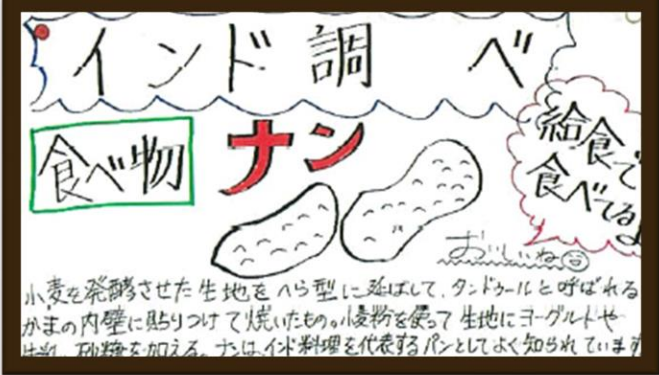 インド調べ
給食で
食べてるよ
食べ物
ナン
おいしいね
小麦を発酵させた生地をへら型に延ばして、タンドゥールと呼ばれる
かまの内壁に貼りつけて焼いたもの。小麦粉を使って生地にヨーグルトや
牛乳、砂糖を加える。ナンは、インド料理を代表するパンとしてよく知られています